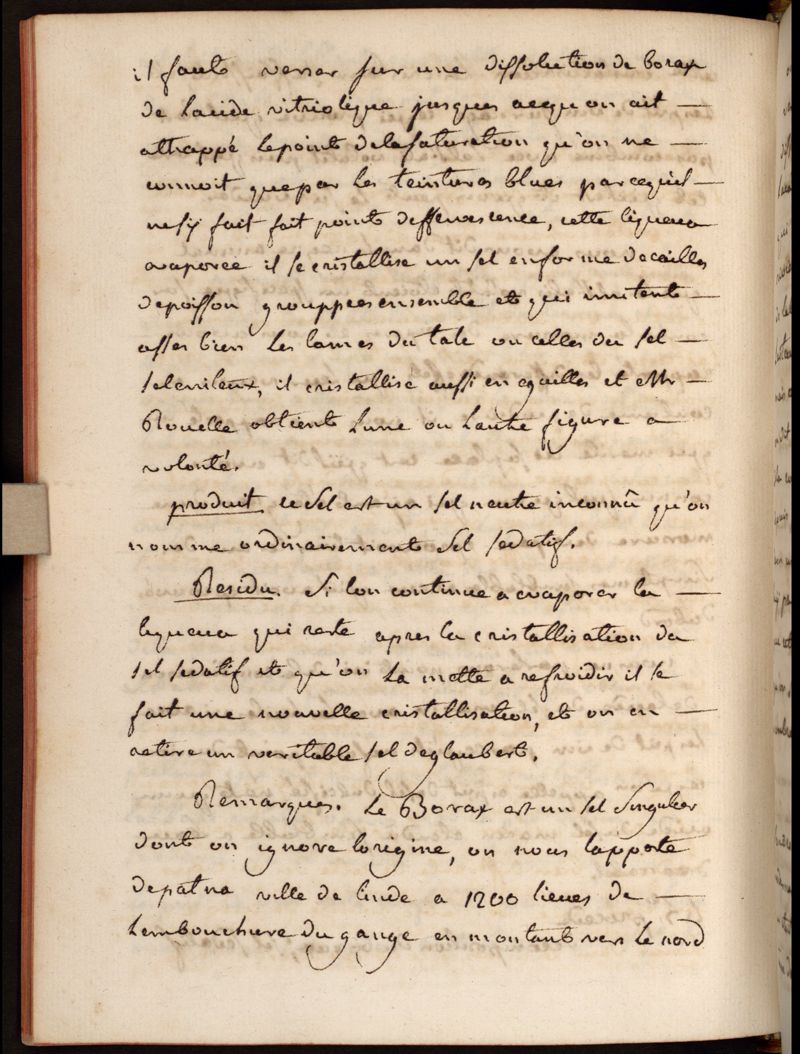 il faut verser sur une dissolution de borax
de lacide vitriolique jusques acequon ait —
attrappé lepoint delasaturation qu'on ne —
connoit quepar les teintures blues parcequil —
nesy fait fait point deffervescence, cette liqueur
evaporée il se cristallise un sel enforme decailles
depoisson grouppees ensemble et qui imitent —
asses bien les lames du talc ou celles du sel —
selenileux, il cristallise aussi en eguilles et Mr —
Rouelle obtient lune ou lautre figure a —
volonté.
produit ce sel est un sel neutre inconnû qu'on
nomme ordinairement sel sedatif.
Residu. Si lon continue a evaporer la —
liqueur qui reste apres la cristallisation du
sel sedatif et qu'on la mette a refroidir il se
fait une nouvelle cristallisation, et on en —
retire un veritable sel deglaubert.
Remarques. Le Borax est un sel singulier
dont on ignore lorigine, on nous lapporte
depatna ville de linde a 1200 lieues de —
lembouchure du gange en montant vers le nord